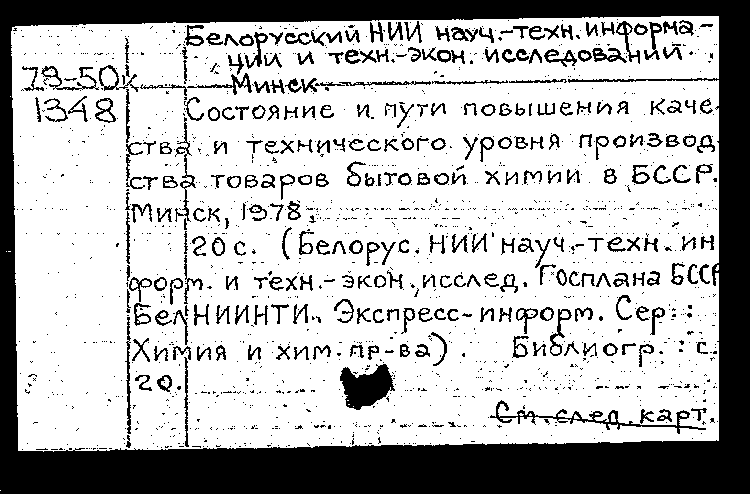 Белорусский НИИ науч.-техн. информа-
ции и техн.-экон. исследований.
78-50к Минск.
1348 Состояние и пути повышения каче-
ства и технического уровня производ-
ства товаров бытовой химии в БССР.
Минск, 1978.
20 с. (Белорус. НИИ науч.-техн. ин
форм. и техн.-экон. исслед. Госплана БССР
БелНИИНТИ. Экспресс-информ. Сер.:
Химия и хим. пр-ва). Библиогр.: с.
20.
См. след. карт.